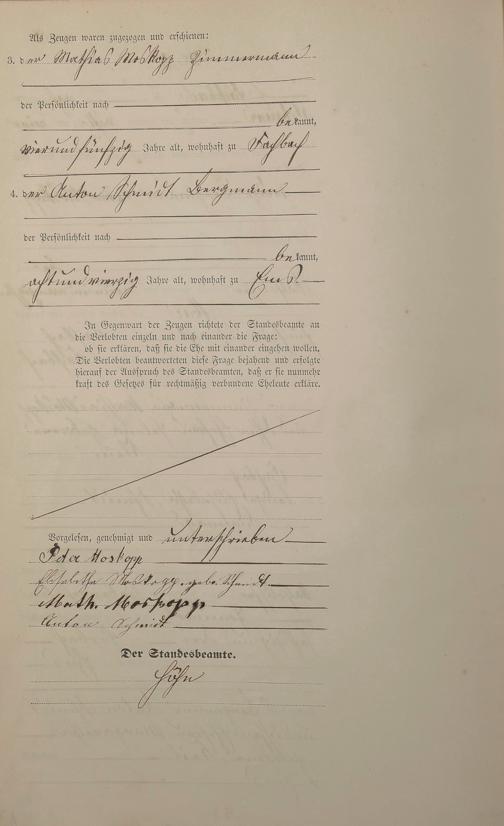 Als Zeugen waren zugezogen und erschienen:
3. der Mathias Moskopp Zimmermann
der Persönlichkeit nach
bekannt,
vierundfünfzig Jahre alt, wohnhaft zu Fachbach
4. der Anton Schmidt Bergmann
der Persönlichkeit nach
bekannt,
achtundvierzig Jahre alt, wohnhaft zu Ems.
In Gegenwart der Zeugen richtete der Standesbeamte an
die Verlobten einzeln und nach einander die Frage:
ob sie erklären, daß sie die Ehe mit einander eingehen wollen.
Die Verlobten beantworteten diese Frage bejahend und erfolgte
hierauf der Ausspruch des Standesbeamten, daß er sie nunmehr
kraft des Gesetzes für rechtmäßig verbundene Eheleute erkläre.
Vorgelesen, genehmigt und unterschrieben
Moskopp
Moskopp geb. Schmidt
Math. Moskopp
Anton Schmidt
Der Standesbeamte.
Höhn